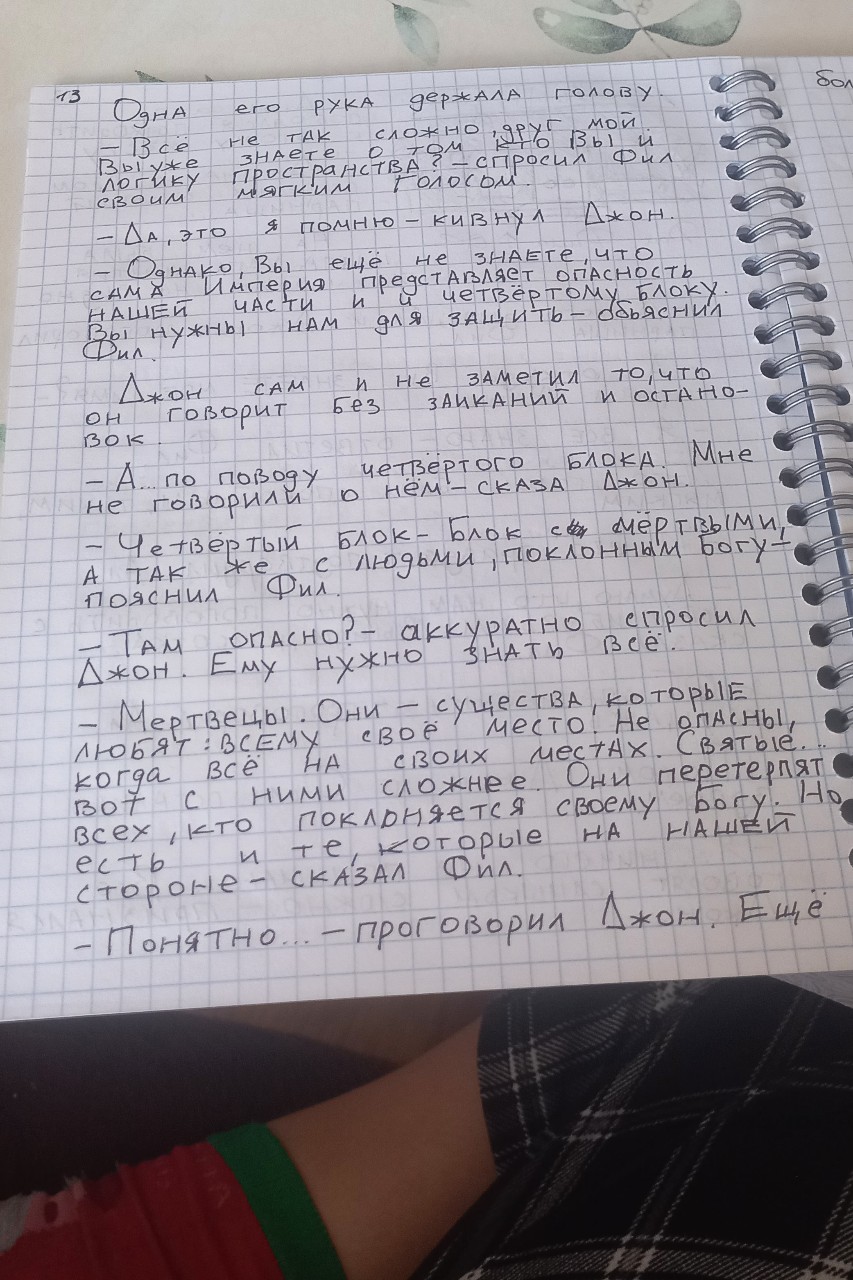 13
Одна его рука держала голову.
– Всё не так сложно, друг мой.
Вы уже знаете о том кто Вы и
логику пространства? – спросил Фил
своим мягким голосом.
– Да, это я помню – кивнул Джон.
– Однако, Вы ещё не знаете, что
сама Империя представляет опасность
нашей части и и четвёртому блоку.
Вы нужны нам для защить – обьяснил
Фил.
Джон сам и не заметил то, что
он говорит без заиканий и остано-
вок.
– А... по поводу четвёртого блока. Мне
не говорили о нём – сказа Джон.
– Четвёртый блок – Блок с мёртвыми,
а так же с людьми, поклонным Богу –
пояснил Фил.
– Там опасно? – аккуратно спросил
Джон. Ему нужно знать всё.
– Мертвецы. Они – существа, которые
любят: всему своё место. Не опасны,
когда всё на своих местах. Святые...
вот с ними сложнее. Они перетерпят
всех, кто поклоняется своему Богу. Но
есть и те, которые на нашей
стороне – сказал Фил.
– Понятно... – проговорил Джон. Ещё
бол